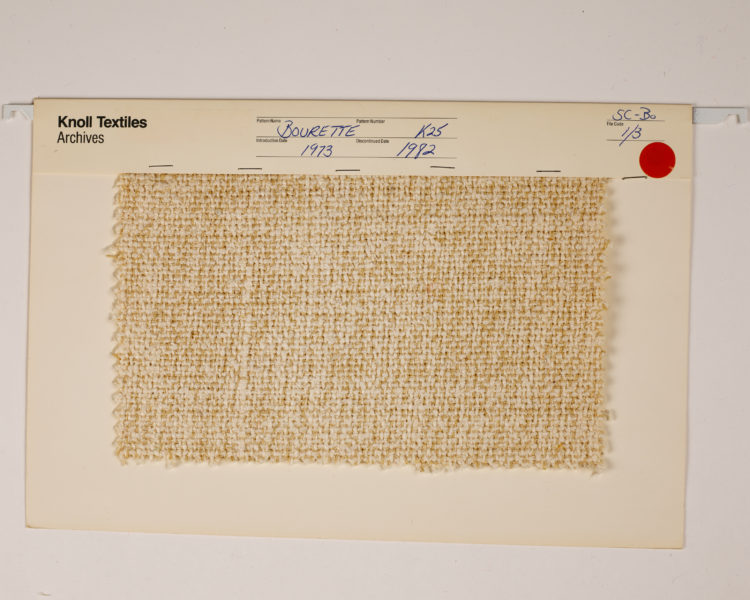 Knoll Textiles
Archives
Pattern Name BOURETTE Pattern Number K25
Introduction Date 1973 Discontinued Date 1982
SC-Bo
File Code 1/3